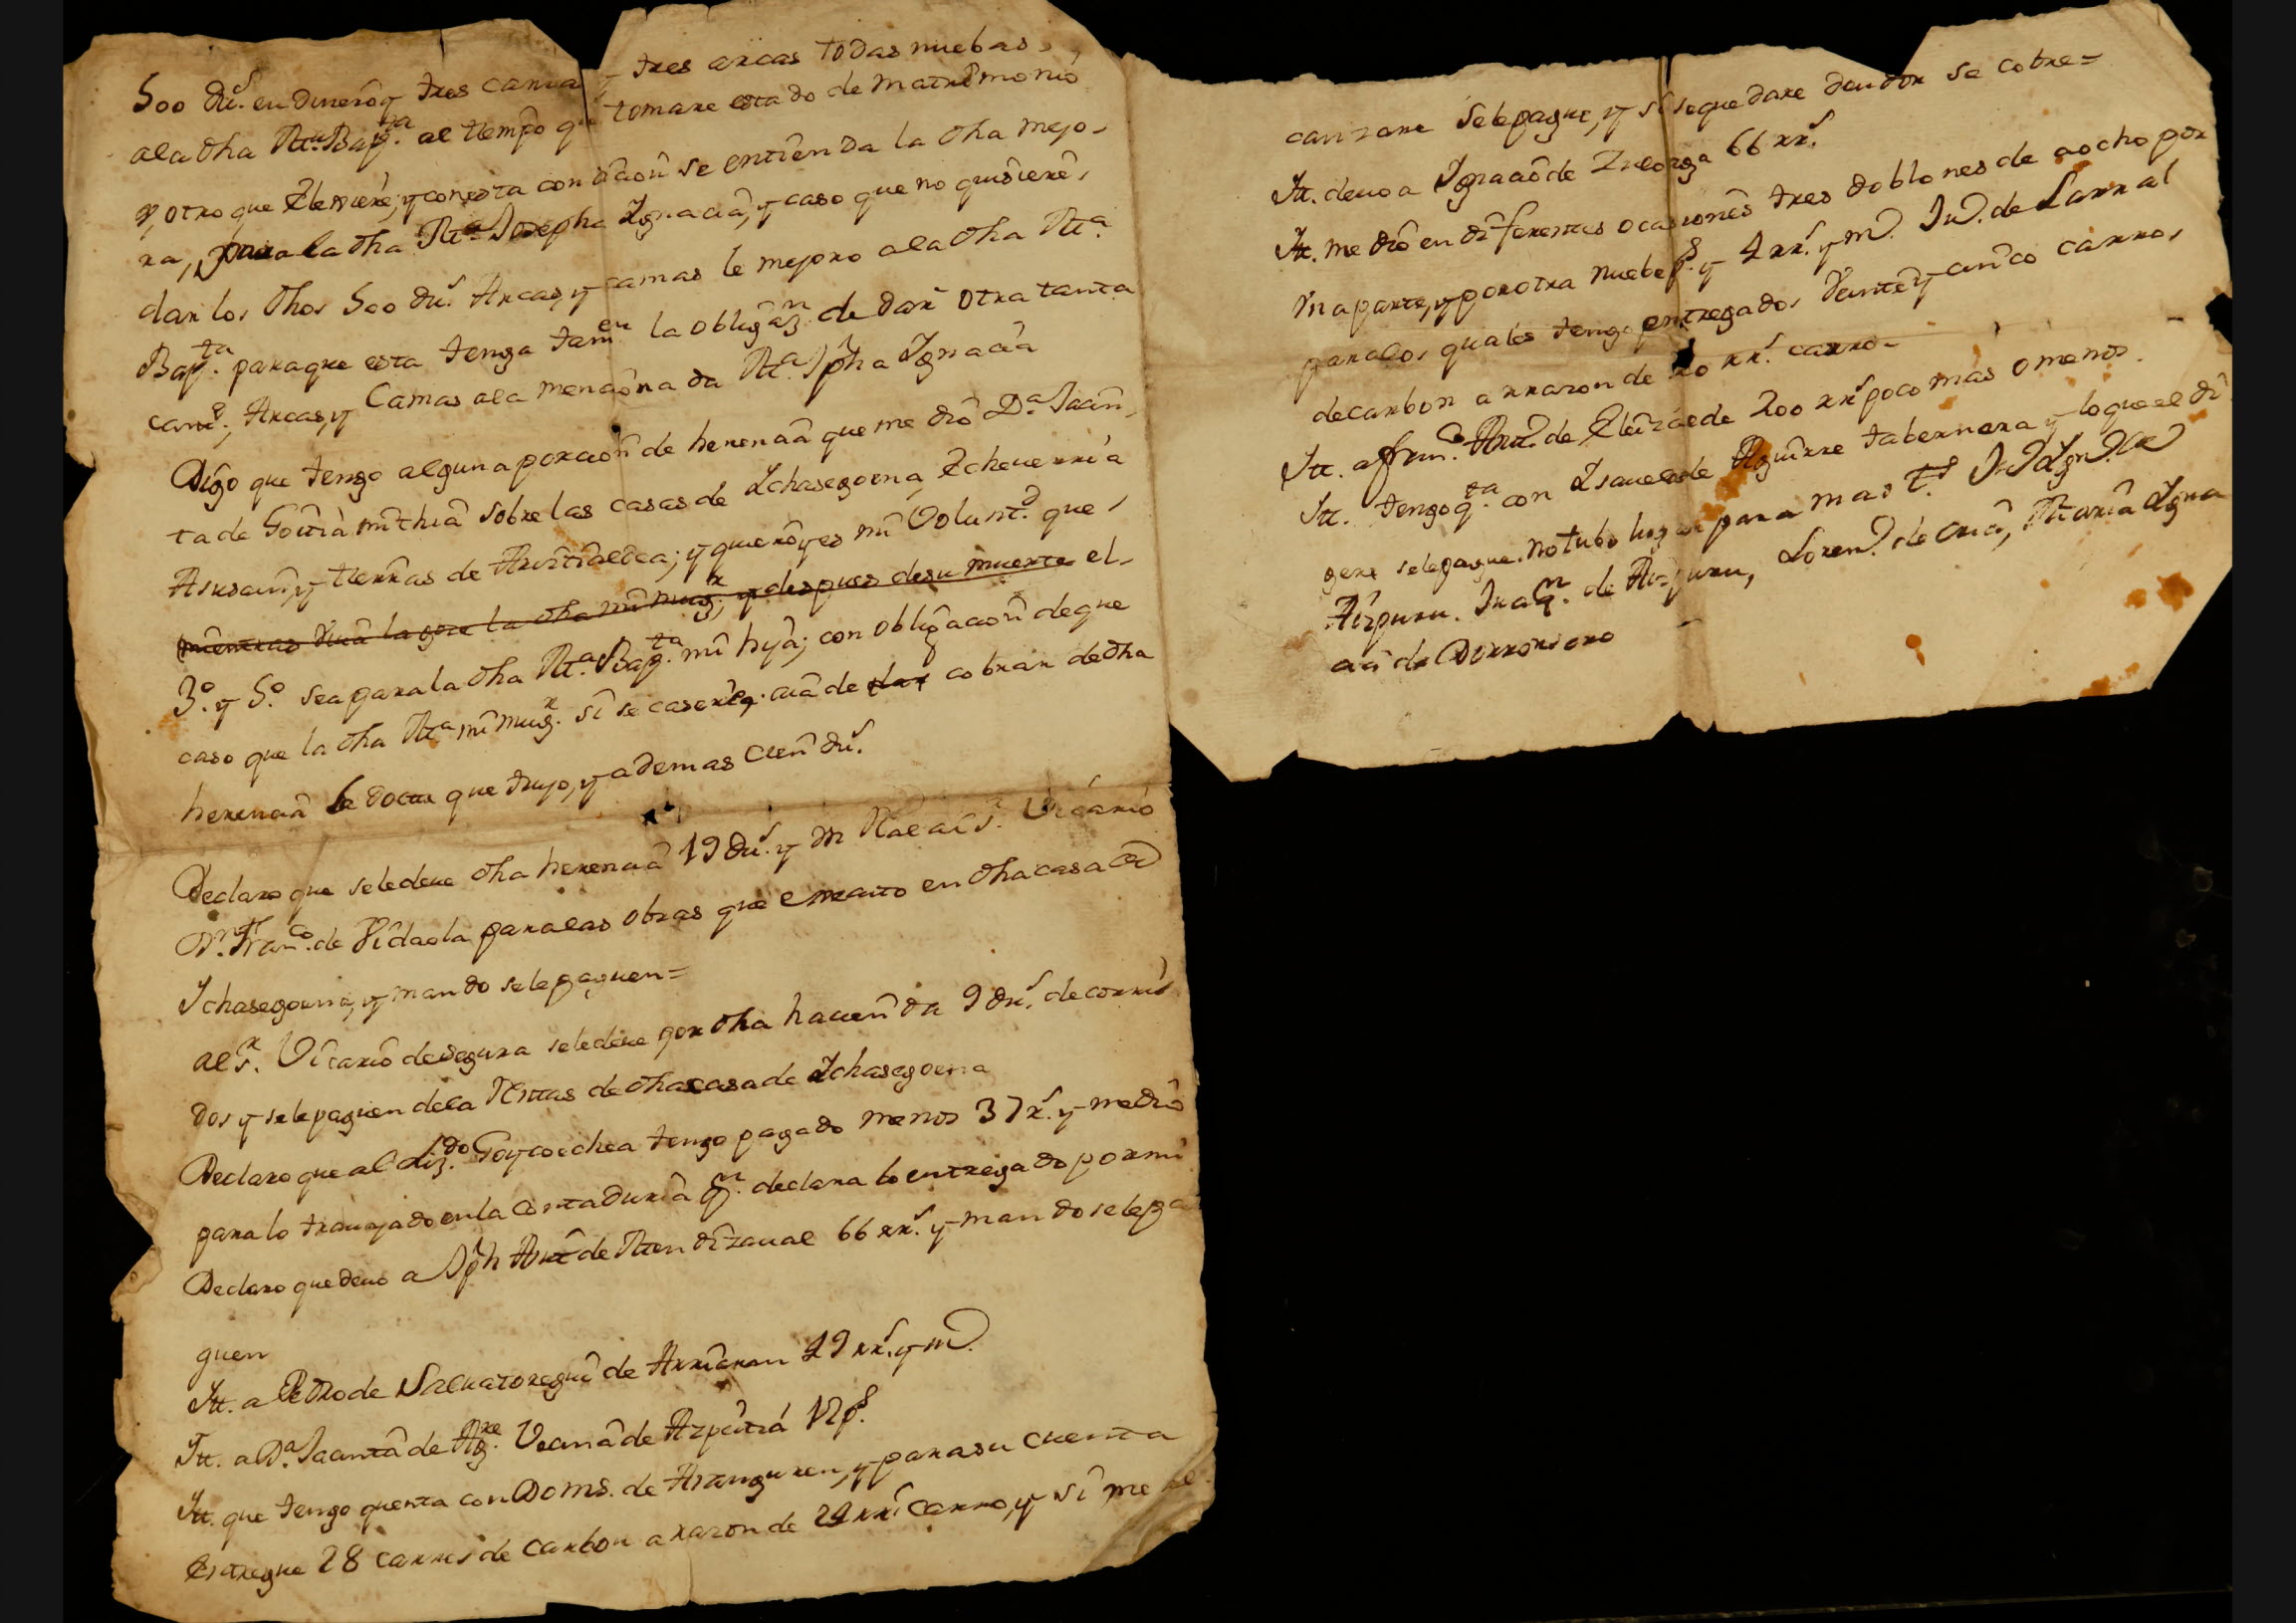 500 du.s en dinero y tres camas y tres arcas todas nuebas,
ala dha M.a Bap.ta al tiempo que tomare estado de matrimonio
y, otro que Eleniere; y con esta condicion se entienda la dha mejo-
ra, para la dha M.a Josepha Ignacia, y caso que no quisiere,
dar los dhos 500 du.s Arcas, y camas le mejoro ala dha M.a
Bap.ta para que esta tenga tam.en la obligaz.n de dar otra tanta
cant.d, Arcas, y Camas ala mencionada M.a Jpha Ignacia
Digo que tengo alguna porcion de herencia que me dio D.a Jacin-
ta de Goitia mi thia sobre las casas de Ichasegoena, Echeuerria
y tierras de; y quiero y es mi Volunt.d que,
mientras viua la goze la dha mi mug.r, y despues de su muerte el-
3.o y 5.o sea para la dha M.a Bap.ta mi hija; con obligacion de que
caso que la dha M.a mi mug.r si se casere, aia de dar cobrar de dha
herencia le docte que trujo, y ademas cien du.s
Declaro que se le deue dha herencia 19 du.s y m Real al S.r Vicario
D.n Fran.co de Vidaola para las obras que en dha casa
Ichasegoena, y mando se le paguen=
al S.r Vicario de Segura se le deue por dha hacienda 9 du.s de corri-
dos y se le paguen de la Rentas de dhas casa de Ichasegoena
Declaro que al Liz.do Goycoechea tengo pagado menos 37 r.s y medio
para lo trauajado en la Contaduria q.n declara lo entregado por mi
Declaro que deuo a Jph Ant.o de Mendizaual 66 rr.s y mando se le pa
guen
Itt. a Pedro de Saluatoregui de Arriaran 49 rr.s y m.o
Itt. a D.a Jacinta de Ag.rre Vecina de Azpeitia 12 p.s
Itt. que tengo quenta con Dom.s de Aranguren, y para su cuenta
Entregue 28 carros de carbon a razon de 24 rr.s carro, y si me al
canzare se le pague, y si se quedare deudor se cobre=
Itt. deuo a Ignacio de Zuloaga 66 rr.s
Itt. me dio en diferentes ocasiones tres doblones de a ocho por
Vna parte, y por otra nuebe p.s y 4 rr.s y m.o Ju.o de Larral
para los quales tengo entregados Veinte y cinco carros,
de carbon a rrazon de 20 rr.s carro-
Itt. a Fran.co Ant.o de Eleizalde 200 rr.s poco mas o menos.
Itt. tengo q.ta con Isauela de Aguirre tabernera y lo que el di
gere se le pague. no tubo lugar para mas t.s Ju.o Ign.o de
Aizpuru. Juaq.n de Aizpuru, Loren.o de Oria, Maria Igna
cia de Dorronsoro